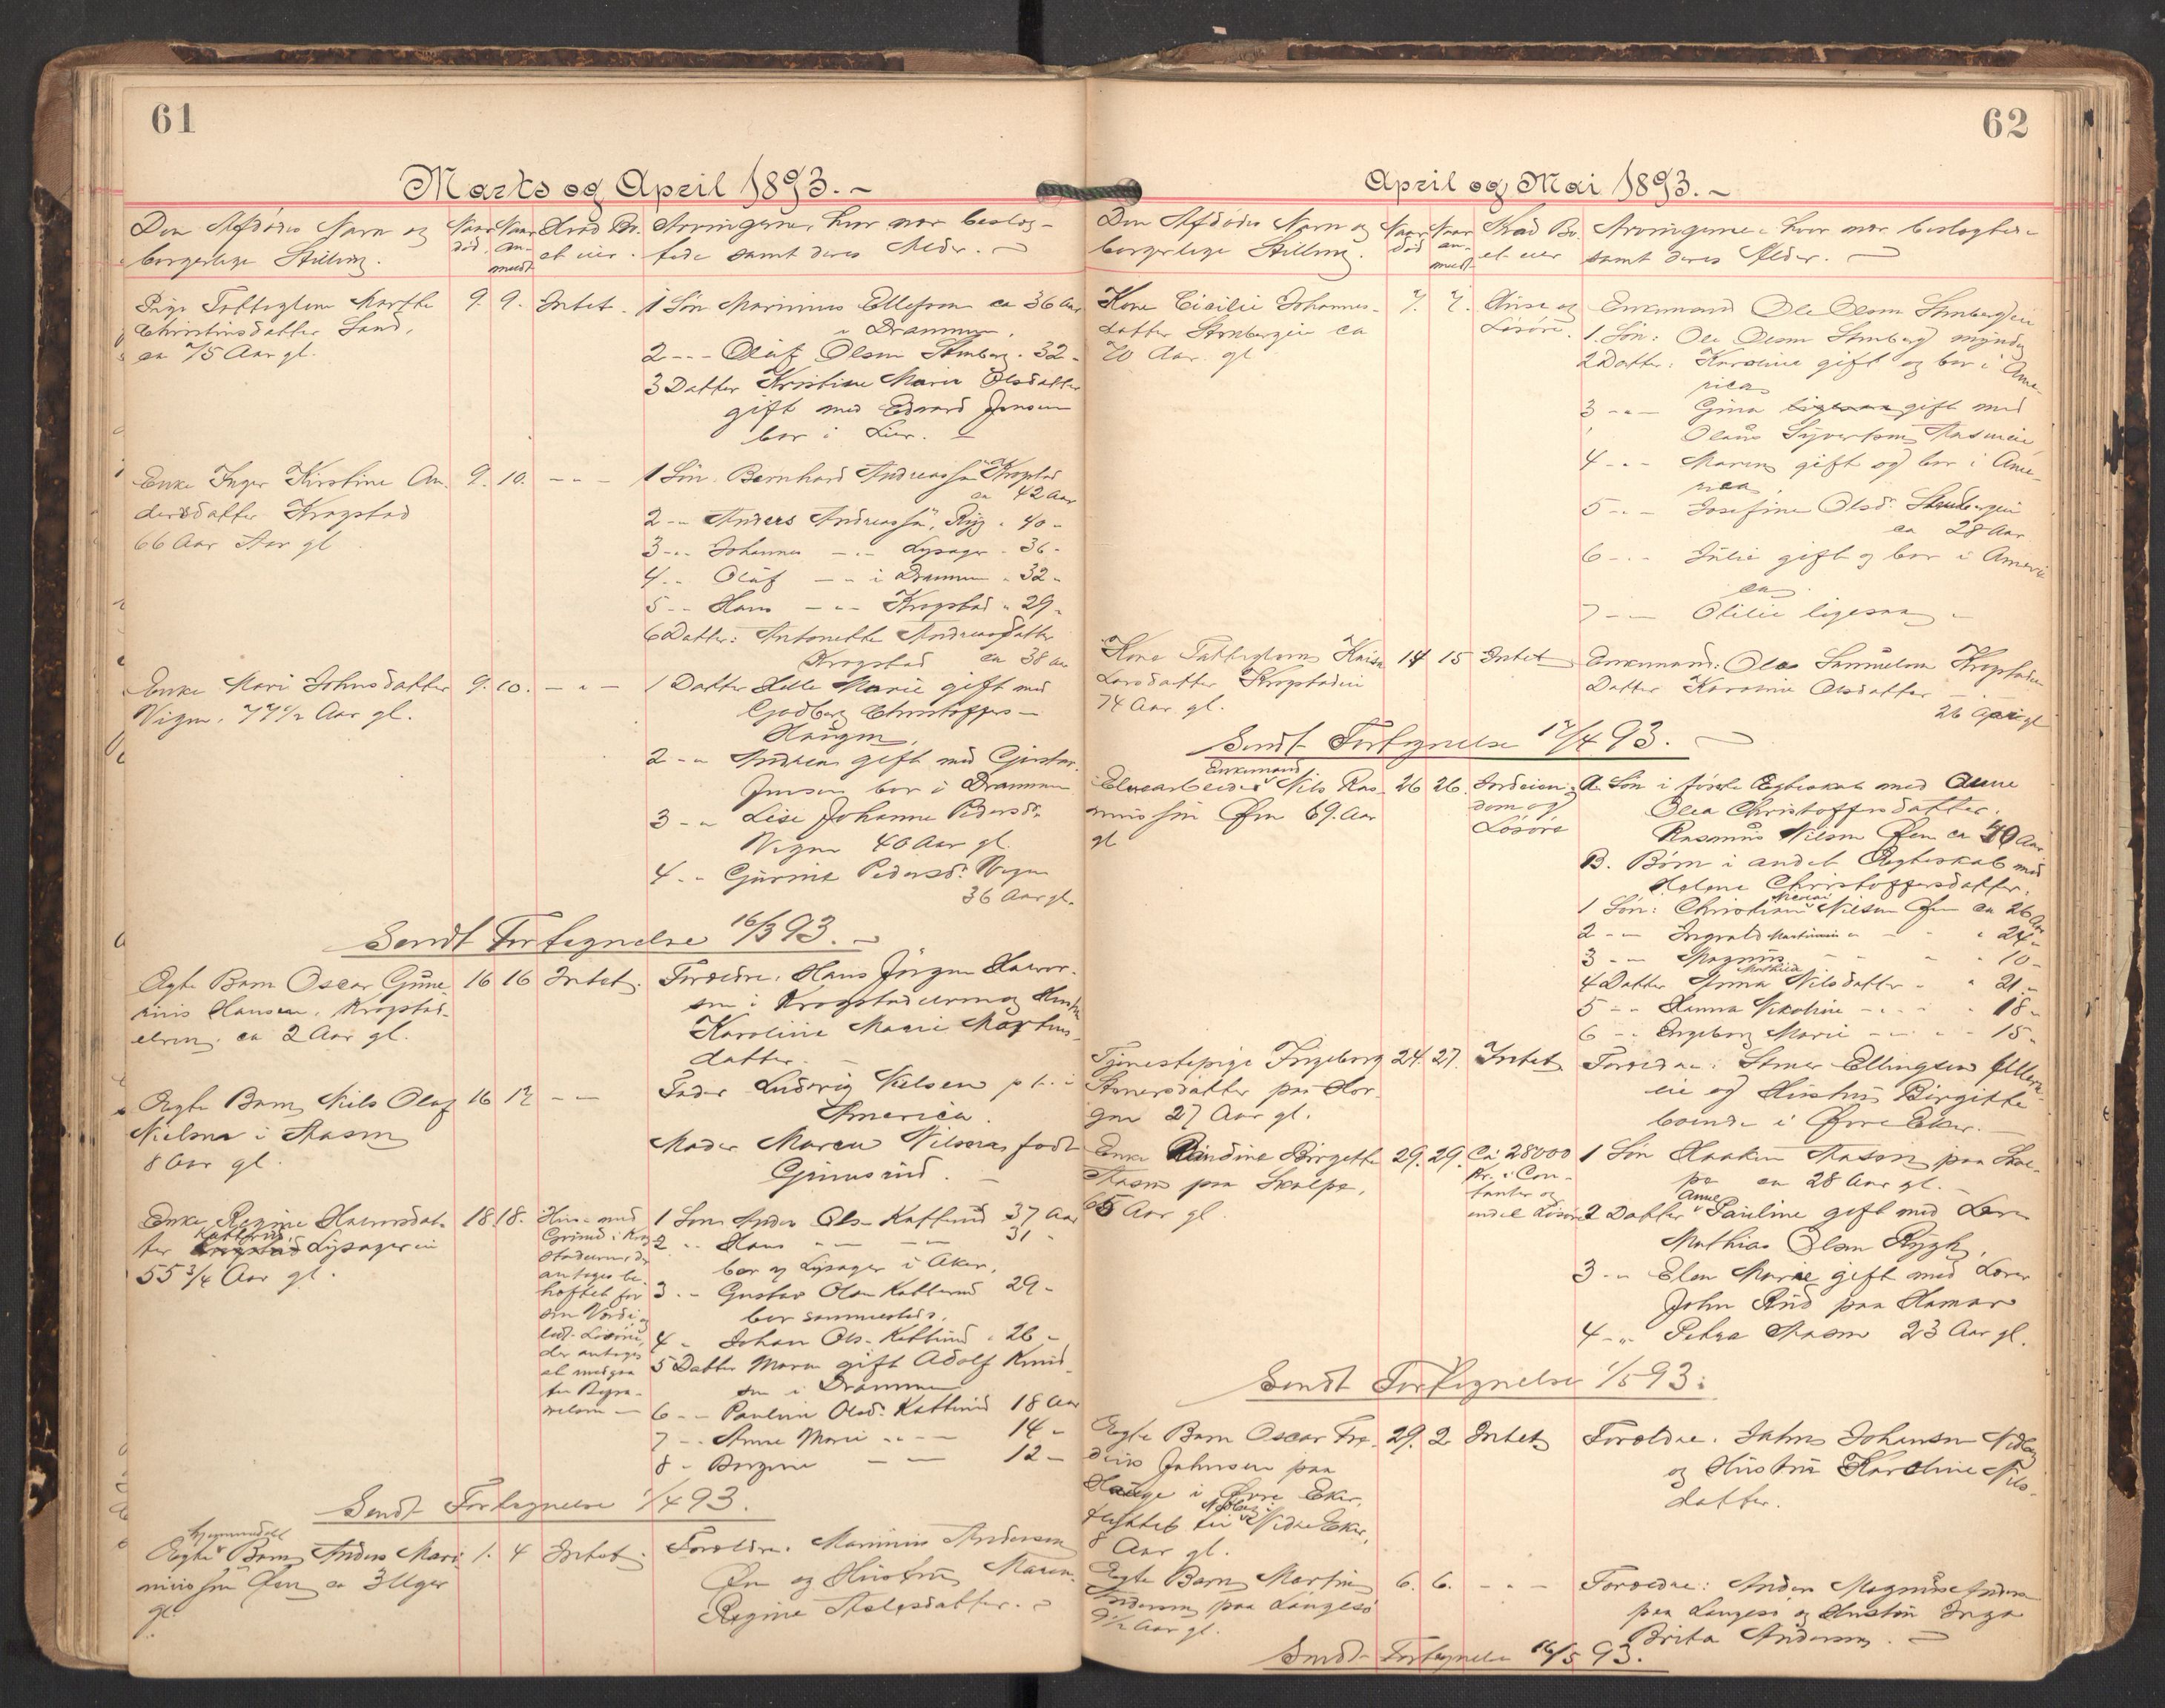 61
Marts og April 1893.-
Den Afdødes Navn og borgerlige Stilling.
Naar død.
Naar an- meldt
Hvad Bo- et eier.
Arvingerne, hvor nær beslæg-
tede samt deres Alder.
Pige Fattiglem Marthe
Christinsdatter Sand,
ca 75 Aar gl.
9. 9. Intet.
1 Søn Marinius Ellefsen ca 36 Aar
i Drammen.
2 - - - Olaf Olsen Stenberg. 32 -
3 Datter Kristine Marie Olsdatter
gift med Edvard Jensen
bor i Lier.
Enke Inger Kirstine An-
dersdatter Krogstad
66 Aar Aar gl
9. 10. - - -
1 Søn. Bernhard Andreassen Krogstad
ca 42 Aar
2 - - Anders Andreassen, Ryg - 40 -
3 - - Johannes - - - Lysager - 36 -
4 - - Olaf - - i Drammen - 32 -
5 - - Hans - - - Krogstad - 29 -
6 Datter: Antonette Andreasdatter
Krogstad ca 38 Aar
Enke Mari Johnsdatter
Vigen, 77 1/2 Aar gl.
9. 10. - - -
1 Datter Helle Marie gift med
Gudbrg Christoffers-
Haugen,
2 - - Andrea gift med Gustav
Jensen bor i Drammen
3 - - Lise Johanne Pedersd:
Vigen 40 Aar gl.
4 - - Gurine Pedersd: Vigen
36 Aar gl.
Sendt Fortegnelse 16/3 93.
Ægte Barn Oscar Gune-
rius Hansen, Krogstad-
elven, ca 2 Aar gl.
16 16 Intet.
Forældre. Hans Jørgen Halvor-
sen i Krogstadelven og Hustru
Karoline Marie Martins-
datter.
Ægte Barn Nils Olaf
Nielsen i Aasen
8 Aar gl.
16 17 - -
Fader Ludvig Nielsen p. t. i
America.
Moder Maren Nilsen født
Gunnerud.
Enke Regine Halvorsdat-
ter Katterud Lysagereie
55 3/4 Aar gl.
18 18.
Huse med
Grund i Krog-
stadelven, der
antages be-
heftet for
sin Værdi og
lidt Løsøre,
der antages
at medgaa
til Begra-
velsen
1 Søn Anders Ols- Katterud 37 Aar
2 - - Hans - - - - 31 -
bor og Lysager i Aker.
3 - - Gustav Olsen Katterud 29 -
bor sammesteds.
4 - Johan Ols- Katterud - 26 -
5 Datter Maren gift Adolf Knud-
sen i Drammen
6 - - Pauline Olsd: Katterud 18 Aar
7 - - Anne Marie - - - 14 -
8 - Bergine - - - 12 -
Sendt Fortegnelse 1/4 93.
hjemmedøbt
Ægte Barn Anders Mari-
niussen Øen ca 3 Uger
gl.
1. 4 Intet.
Forældre. Marinius Andersen
Øen og Hustru Maren
Regine Aslesdatter.
62
April og Mai 1893.-
Den Afdødes Navn og
borgerlige Stilling.
Naar død
Naar an- meldt
Hvad Bo- et eier
Arvingerne. hvor nær beslegtede
samt deres Alder.
Kone Cicilie Johannes-
datter Stenbergeie ca
70 Aar. gl
7. 7.
Huse og
Løsøre.
Enkemand Ole Olsen Stenbergeie
1. Søn: Ole Olsen Stenberg myndig
2 Datter: Karoline gift og bor i Ame-
rica
3 - - - Gina ligesaa gift med
Olaus Syvertsen Aaseneie
4 - - - Maren gift og bor i Ame-
rica,
5 - - - Josefine Olsd: Stenbergeie
ca 28 Aar
6 - - - Julie gift og bor i Ameri-
ca.
7 - - - Otilie ligesaa -
Kone Fattiglem Kaisa
Larsdatter Krogstadeie
74 Aar gl.
14 15 Intet
Enkemand: Ole Samuelsen Krogstadeie
Datter Karoline Olsdatter - -
26 Aar gl
Sendt Fortegnelse 17/4 93.
Enkemand
Elvearbeider Nils Ras-
mussen Øen 69. Aar
gl
26 26.
Jordeien-
dom og
Løsøre
A. Søn i første Ægteskab med Anne
Olea Christoffersdatter.
Rasmus Nilsen Øen ca 40 Aar
B. Børn i andet Ægteskab med
Helene Christoffersdatter,
1 Søn: Christian Nicolai Nilsen Øen ca 26 Aar
2 - - Ingvald Martinius - - - 24 -
3 - - Magnus - - - 10 -
4 Datter Anna Mathilde Nilsdatter - - 21 -
5 - - Hanna Nikoline - - - 18 -
6 - - Engeborg Marie - - - 15 -
Tjenestepige Ingeborg
Stenersdatter paa Hor-
gen 27 Aar gl.
24. 27. Intet
Forældre: Stener Ellingsen
eie og Hustru Birgitte
boende i Øvre Eker.
Enke Randine Birgette
Aasen paa Skalpe,
65 Aar gl.
29. 29.
Ca 28000
Kr. i Con-
tanter og
endel Løsøre
1 Søn Haaken Aasen paa Skal-
pe ca 28 Aar gl.
2 Datter Anne Pauline gift med Lærer
Mathias Olsen Rygh,
3 - - Elen Marie gift med Lærer
John Rud paa Hamar
4 - - Petra Aasen 23 Aar gl.
Sendt Fortegnelse 1/5 93.
Ægte Barn Oscar Fre-
drik Johnsen paa
Hauge i Øvre Eker,
flyttet til Nedberg i Nedre Eker,
8 Aar gl.
29. 2 Intet
Forældre. John Johansen Nedberg
og Hustru Karoline Nils-
datter.
Ægte Barn Martin
Andersen paa Langesø
9 1/2 Aar gl.
6. 6. - - -
Forældre: Anders Magnus Andersen
paa Langesø og Hustru Inga
Brita Andersen.
Sendt Fortegnelse 16/5 93.